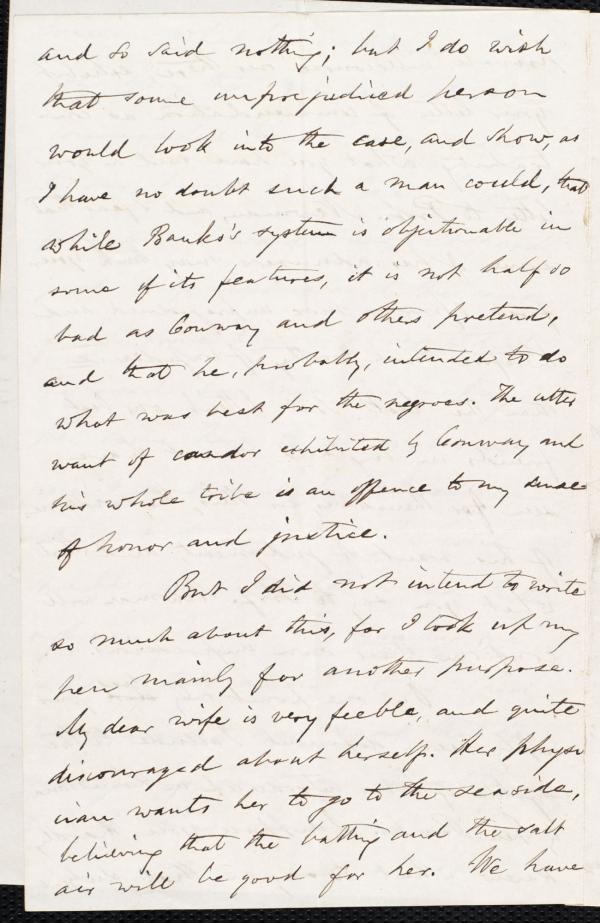 and so said nothing; but I do wish
that some unprejudiced person
would look into the case, and show, as
I have no doubt such a man could, that
while Banks's system is objectionable in
some of its features, it is not half so
bad as Conway and others pretend,
and that he, probably, intended to do
what was best for the negroes. The utter
want of candor exhibited by Conway and
his whole tribe is an offence to my sense
of honor and justice.
But I did not intend to write
so much about this, for I took up my
pen mainly for another purpose.
My dear wife is very feeble, and quite
discouraged about herself. Her physi
cian wants her to go to the seaside,
believing that the bathing and the salt
air will be good for her. We have